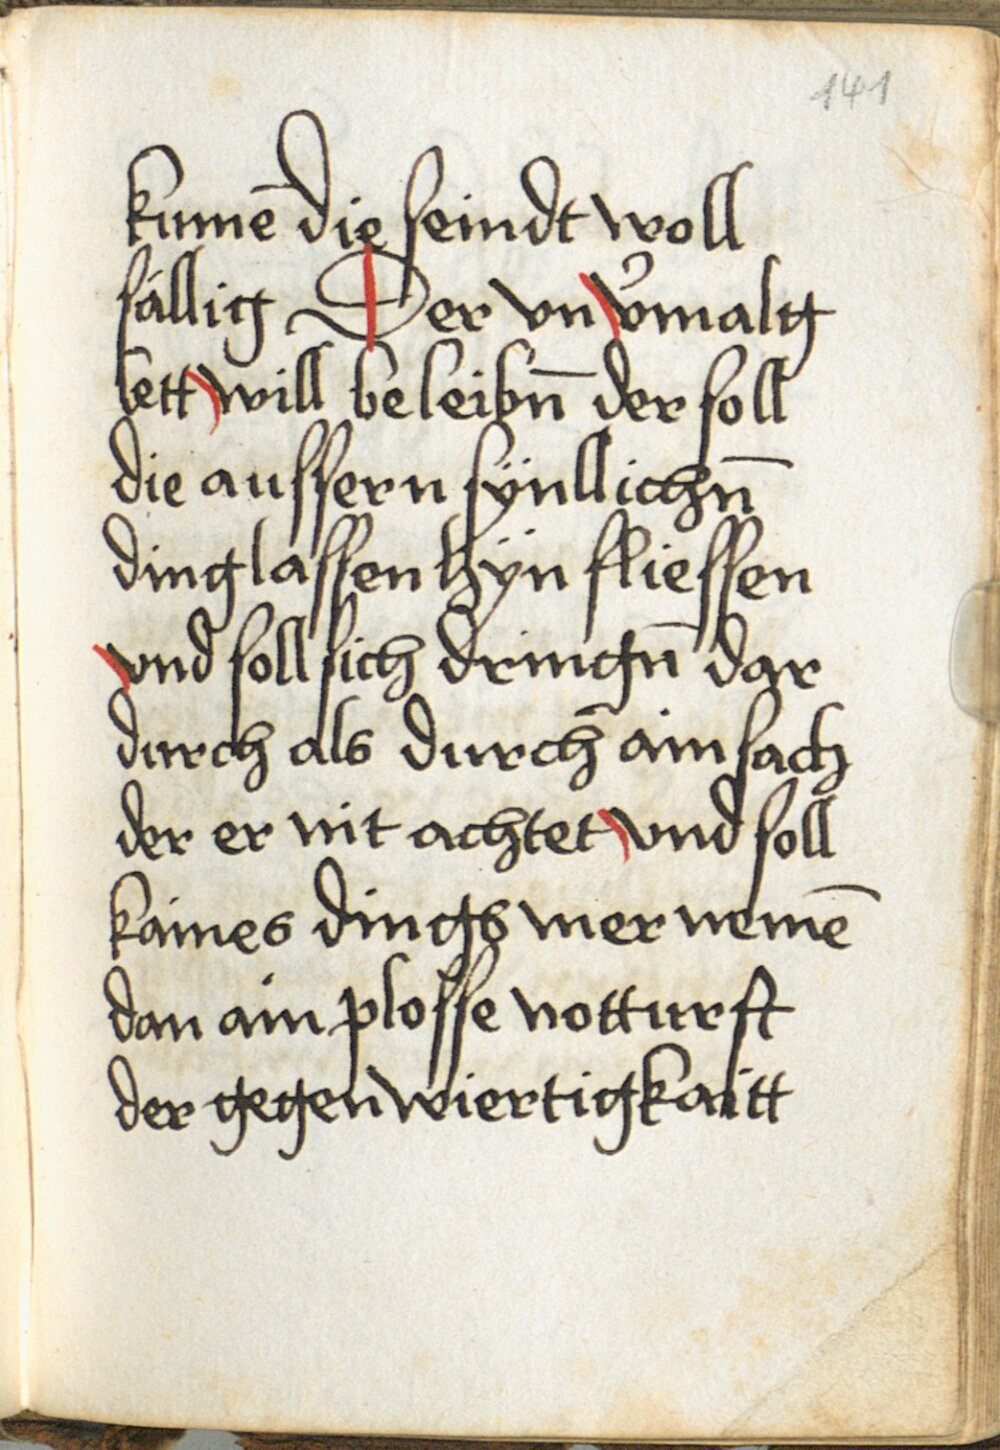 141
kumē die seindt woll
sällig Der vn v̾malg
kett will beleibn̄ der soll
die aussern sÿnllichn̄
ding lassen hÿn fliessen
vnd soll sich dringn̄ dar
durch als durch ain sach
der er nit achtet vnd soll
kaines dings mer nemē
dan ain plosse notturft
der gegenwiertigkaitt